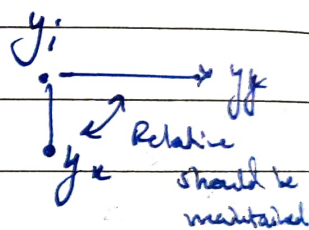 yi
yk
Relative
yx
should be
maintained